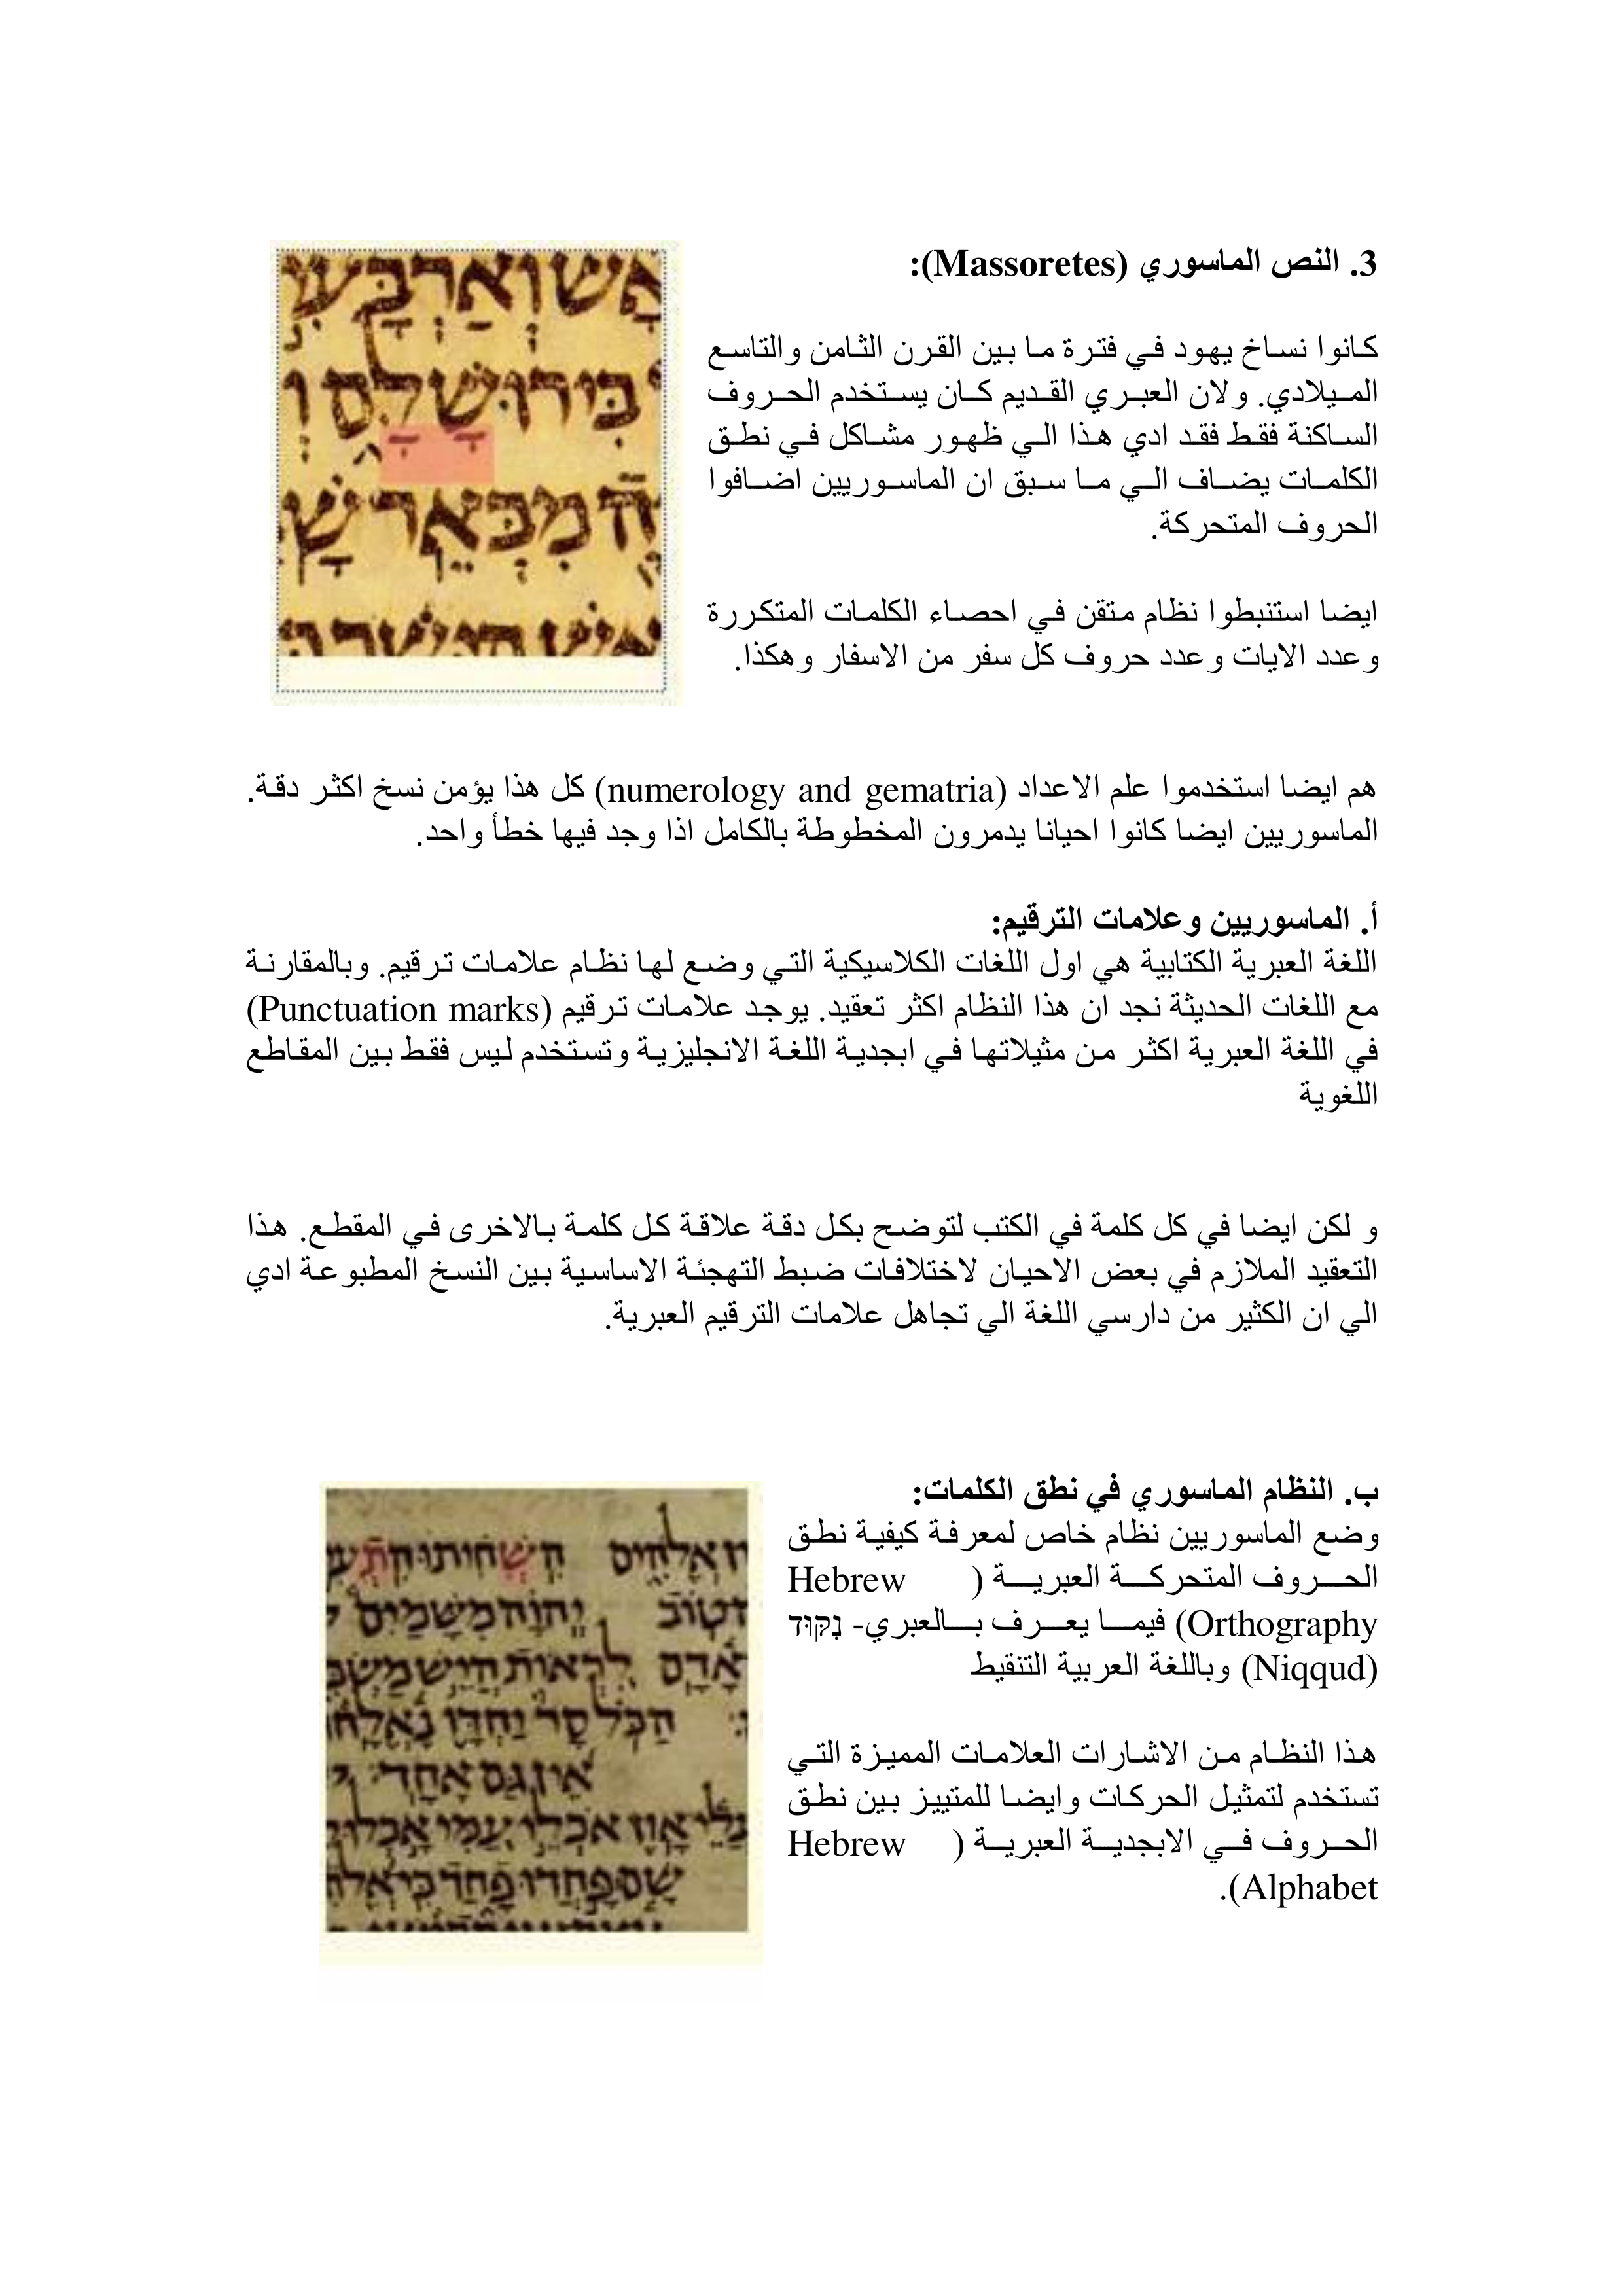 3. النص الماسوري (Massoretes):
كانوا نساخ يهود في فترة ما بين القرن الثامن والتاسع
الميلادي. ولان العبري القديم كان يستخدم الحروف
الساكنة فقط فقد ادي هذا الي ظهور مشاكل في نطق
الكلمات يضاف الي ما سبق ان الماسوريين اضافوا
الحروف المتحركة.
ايضا استنبطوا نظام متقن في احصاء الكلمات المتكررة
وعدد الايات وعدد حروف كل سفر من الاسفار وهكذا.
هم ايضا استخدموا علم الاعداد (numerology and gematria) كل هذا يؤمن نسخ اكثر دقة.
الماسوريين ايضا كانوا احيانا يدمرون المخطوطة بالكامل اذا وجد فيها خطأ واحد.
أ. الماسوريين وعلامات الترقيم:
اللغة العبرية الكتابية هي اول اللغات الكلاسيكية التي وضع لها نظام علامات ترقيم. وبالمقارنة
مع اللغات الحديثة نجد ان هذا النظام اكثر تعقيد. يوجد علامات ترقيم (Punctuation marks)
في اللغة العبرية اكثر من مثيلاتها في ابجدية اللغة الانجليزية وتستخدم ليس فقط بين المقاطع
اللغوية
و لكن ايضا في كل كلمة في الكتب لتوضح بكل دقة علاقة كل كلمة بالاخرى في المقطع. هذا
التعقيد الملازم في بعض الاحيان لاختلافات ضبط التهجئة الاساسية بين النسخ المطبوعة ادي
الي ان الكثير من دارسي اللغة الي تجاهل علامات الترقيم العبرية.
ب. النظام الماسوري في نطق الكلمات:
وضع الماسوريين نظام خاص لمعرفة كيفية نطق
الحروف المتحركة العبرية (Hebrew
Orthography) فيما يعرف بالعبري- נִקּוּד
(Niqqud) وباللغة العربية التنقيط
هذا النظام من الاشارات العلامات المميزة التي
تستخدم لتمثيل الحركات وايضا للمتييز بين نطق
الحروف في الابجدية العبرية (Hebrew
Alphabet).